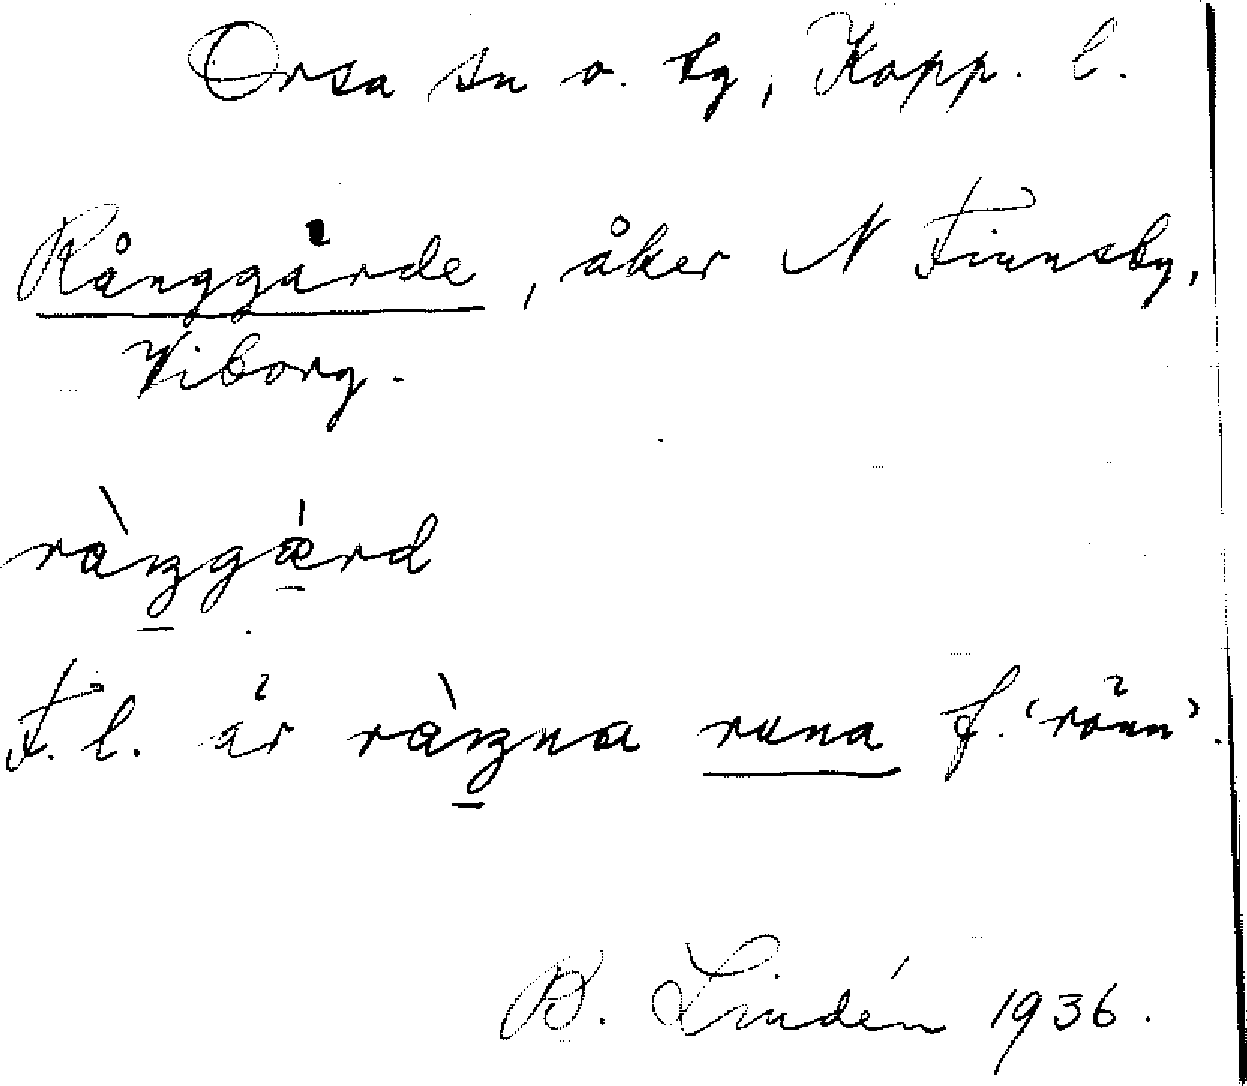 Orsa sn o. tg, Kopp. l.
Rånggärde, åker N Finnsby,
Viborg.
F. l. är runa f. 'rönn'.
B. Lindén 1936.